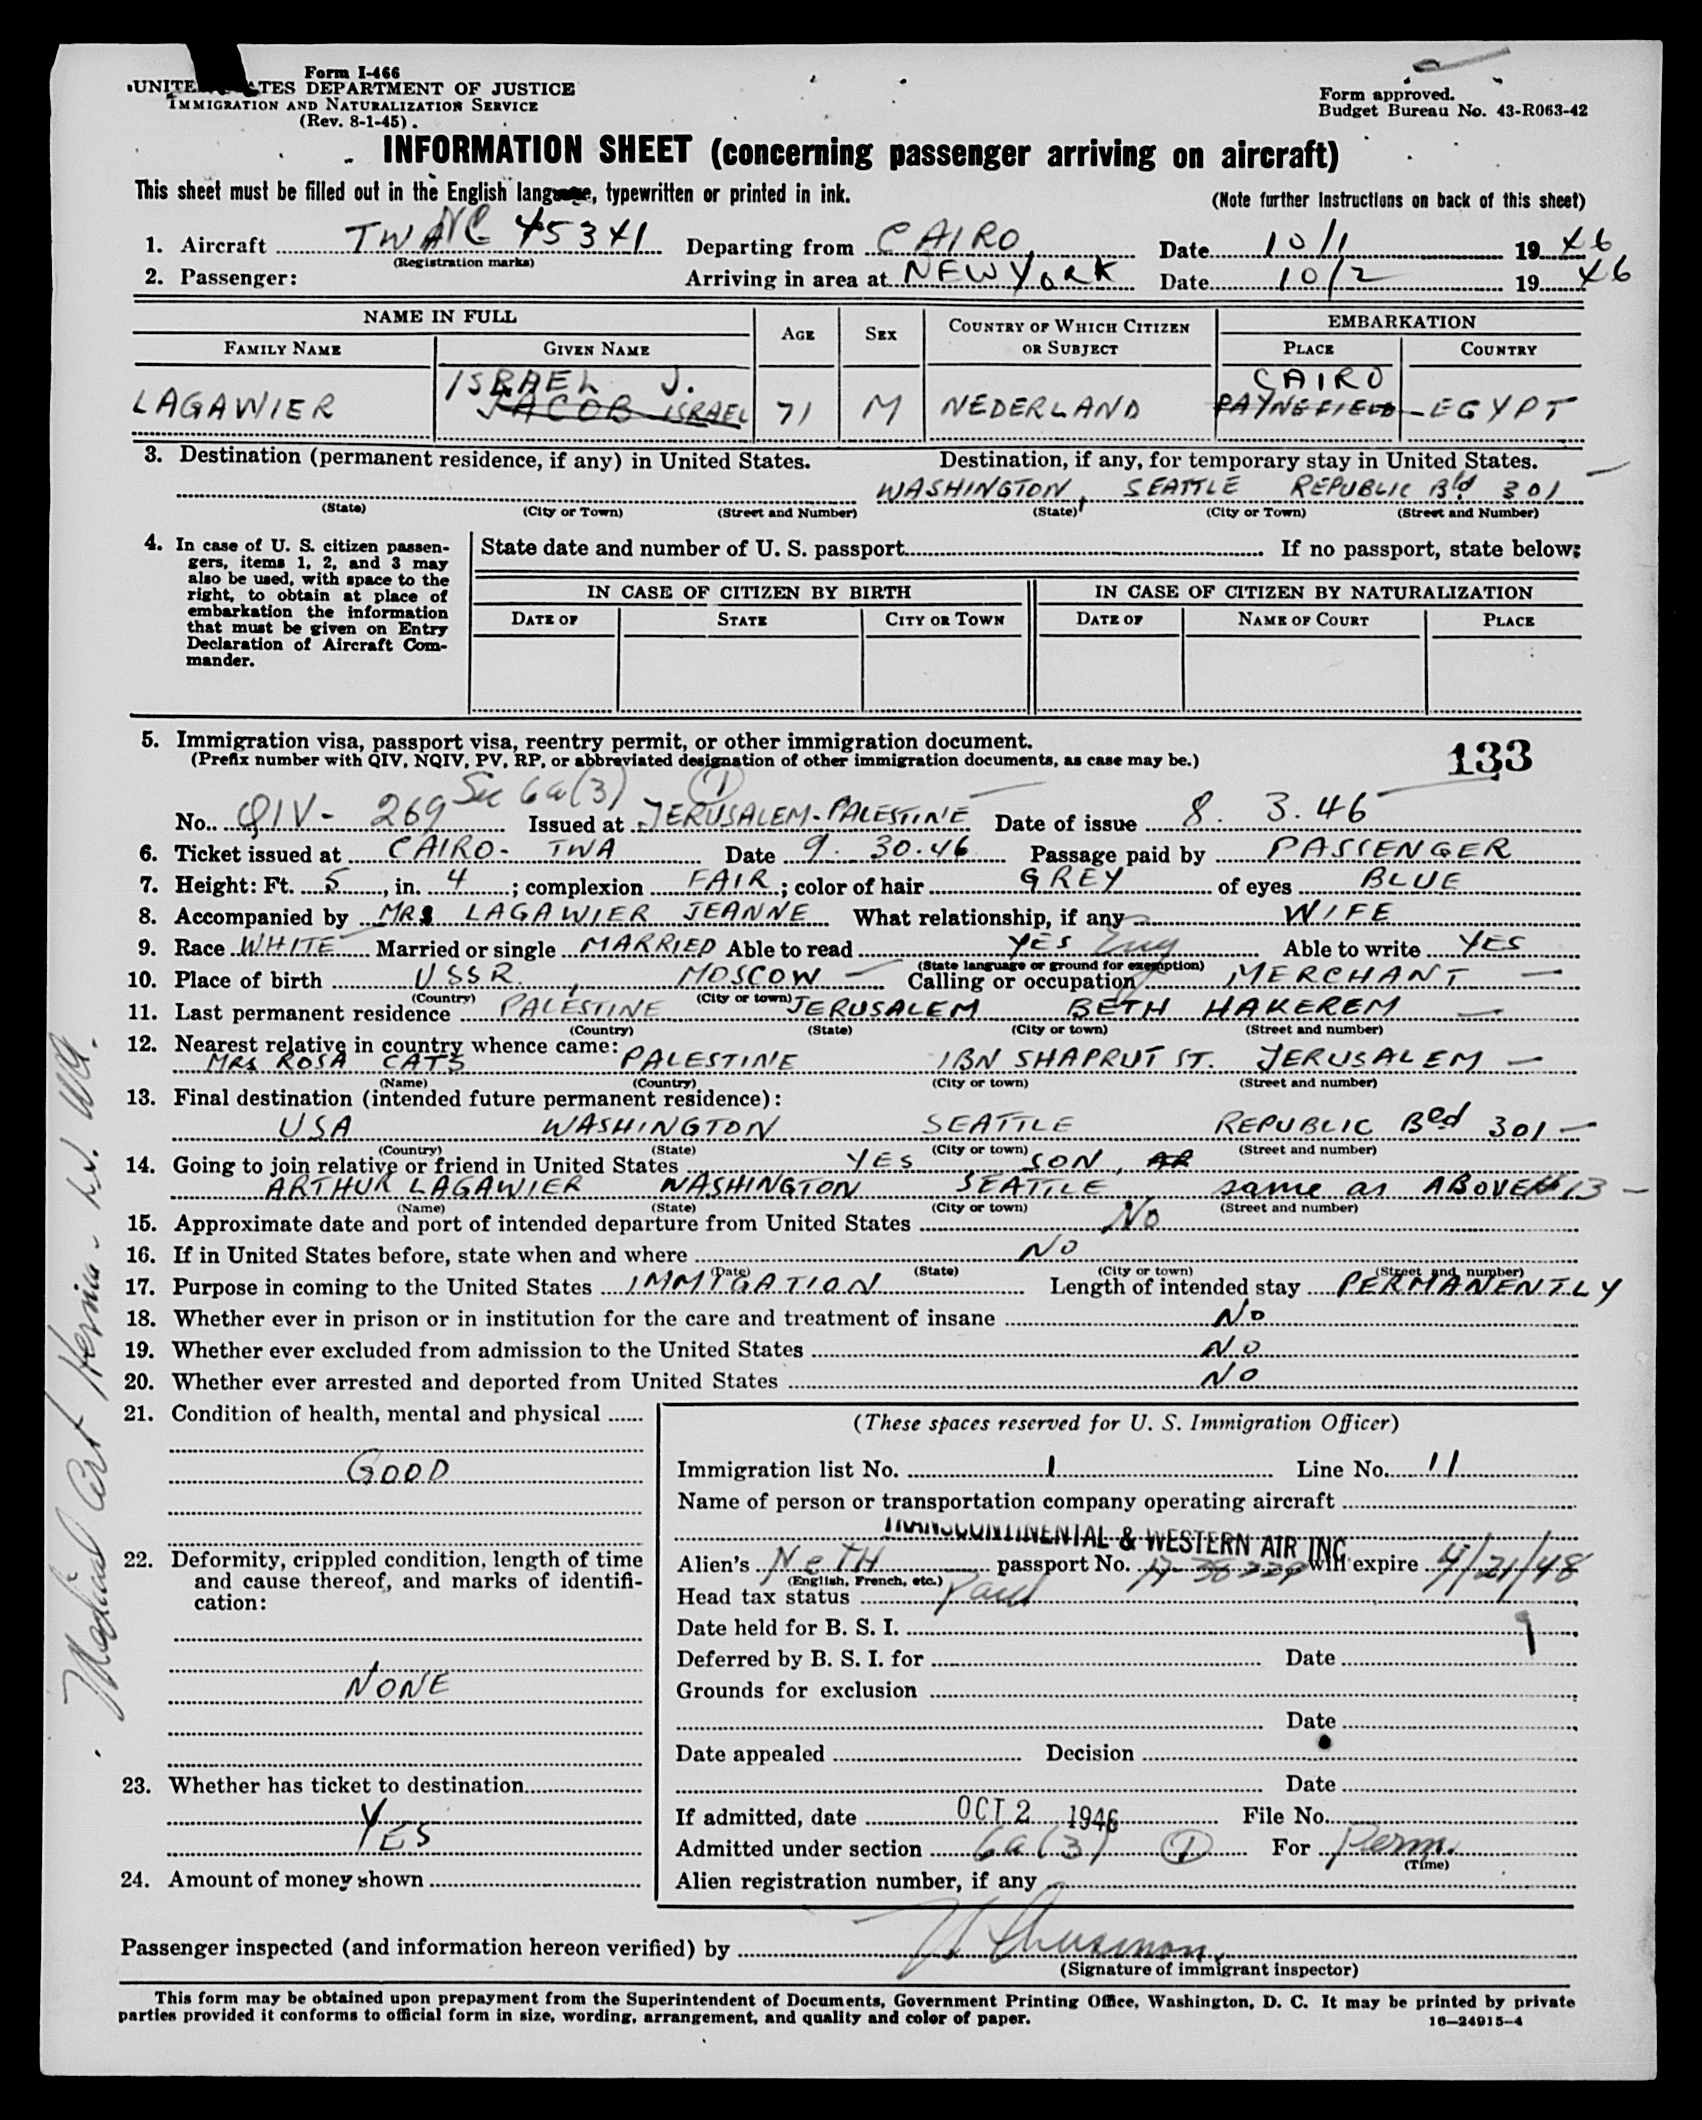 Form I-466
UNITE TES DEPARTMENT OF JUSTICE
IMMIGRATION AND NATURALIZATION SERVICE
(Rev. 8-1-45)
Form approved.
Budget Bureau No. 43-R063-42
INFORMATION SHEET (concerning passenger arriving on aircraft)
This sheet must be filled out in the English language, typewritten or printed in ink.
(Note further instructions on back of this sheet)
1. Aircraft TWA NC 45341 Departing from CAIRO Date 10/1 1946
(Registration marks)
2. Passenger: Arriving in area at NEW YORK Date 10/2 1946
NAME IN FULL AGE SEX COUNTRY OF WHICH CITIZEN OR SUBJECT EMBARKATION
FAMILY NAME GIVEN NAME PLACE COUNTRY
ISRAEL J. CAIRO
LAGAWIER JACOB ISRAEL 71 M NEDERLAND PAYNEFIELD - EGYPT
3. Destination (permanent residence, if any) in United States. Destination, if any, for temporary stay in United States.
WASHINGTON, SEATTLE REPUBLIC Bld 301
(State) (City or Town) (Street and Number) (State) (City or Town) (Street and Number)
4. In case of U. S. citizen passen-
gers, items 1, 2, and 3 may
also be used, with space to the
right, to obtain at place of
embarkation the information
that must be given on Entry
Declaration of Aircraft Com-
mander.
State date and number of U. S. passport If no passport, state below:
IN CASE OF CITIZEN BY BIRTH IN CASE OF CITIZEN BY NATURALIZATION
DATE OF STATE CITY OR TOWN DATE OF NAME OF COURT PLACE
5. Immigration visa, passport visa, reentry permit, or other immigration document.
(Prefix number with QIV, NQIV, PV, RP, or abbreviated designation of other immigration documents, as case may be.)
133
Sec 6a(3) 1
No. QIV - 269 Issued at JERUSALEM-PALESTINE Date of issue 8. 3. 46
6. Ticket issued at CAIRO - TWA Date 9. 30. 46 Passage paid by PASSENGER
7. Height: Ft. 5, in. 4; complexion FAIR; color of hair GREY of eyes BLUE
8. Accompanied by MRS LAGAWIER JEANNE What relationship, if any WIFE
9. Race WHITE Married or single MARRIED Able to read YES Eng Able to write YES
(State language or ground for exemption)
10. Place of birth USSR, MOSCOW Calling or occupation MERCHANT
(Country) (City or town)
11. Last permanent residence PALESTINE JERUSALEM BETH HAKEREM
(Country) (State) (City or town) (Street and number)
12. Nearest relative in country whence came:
MRS ROSA CATS PALESTINE IBN SHAPRUT ST. JERUSALEM
(Name) (Country) (City or town) (Street and number)
13. Final destination (intended future permanent residence):
USA WASHINGTON SEATTLE REPUBLIC Bld 301
(Country) (State) (City or town) (Street and number)
14. Going to join relative or friend in United States YES SON, AR
ARTHUR LAGAWIER WASHINGTON SEATTLE same as ABOVE # 13
(Name) (State) (City or town) (Street and number)
15. Approximate date and port of intended departure from United States No
16. If in United States before, state when and where NO
(Date) (State) (City or town) (Street and number)
17. Purpose in coming to the United States IMMIGATION Length of intended stay PERMANENTLY
18. Whether ever in prison or in institution for the care and treatment of insane No
19. Whether ever excluded from admission to the United States NO
20. Whether ever arrested and deported from United States NO
21. Condition of health, mental and physical
GOOD
22. Deformity, crippled condition, length of time
and cause thereof, and marks of identifi-
cation:
NONE
23. Whether has ticket to destination
YES
24. Amount of money shown
(These spaces reserved for U. S. Immigration Officer)
Immigration list No. 1 Line No. 11
Name of person or transportation company operating aircraft
TRANSCONTINENTAL & WESTERN AIR INC
Alien's NeTH passport No. will expire 4/21/48
(English, French, etc.)
Head tax status Paid
Date held for B. S. I.
Deferred by B. S. I. for Date
Grounds for exclusion
Date
Date appealed Decision
Date
If admitted, date OCT 2 1946 File No.
Admitted under section 6a(3) 1 For Perm.
(Time)
Alien registration number, if any
Passenger inspected (and information hereon verified) by
(Signature of immigrant inspector)
This form may be obtained upon prepayment from the Superintendent of Documents, Government Printing Office, Washington, D. C. It may be printed by private
parties provided it conforms to official form in size, wording, arrangement, and quality and color of paper.
16—24915-4
Medical Cert Hernia